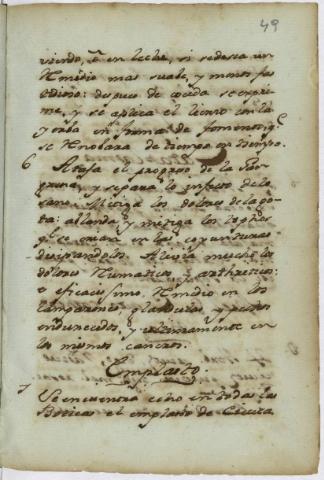 49
viendo, ò en leche, si se desea un
Remedio mas suabe, y menos fas
tidioso: despues de cocida se expri
me, y se aplica el lienzo con la
yerba en forma de fomento, qe
se Renobara de tiempo en tiempo.
6 Ataja el progreso de la Gan
grena, y separa lo infecto de lo
sano. Mitiga los dolores de la go
ta: ablanda y mitiga los tophos
qe se crian en las coyunturas
disipandolos. Alivia mucho los
dolores Reumaticos, y arthreticos:
es eficacissimo Remedio en los
lamparones, glandulas y pechos
endurecidos, y ultimamente en
los mismos cancros.
Emplasto
7 Se encuentra echo en todas las
Boticas el emplasto de Cicuta